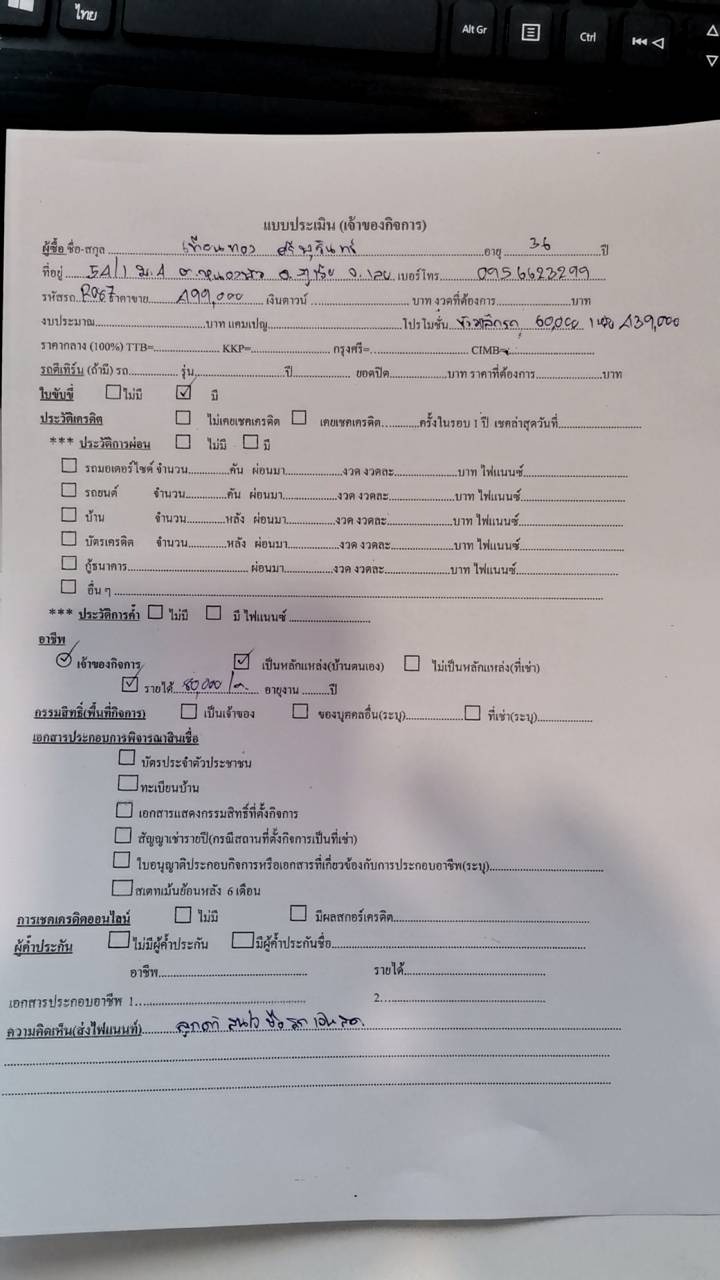 ไทย Alt Gr Ctrl
แบบประเมิน (เจ้าของกิจการ)
ผู้ซื้อ ชื่อ-สกุล เทียนทอง อายุ 36 ปี
ที่อยู่ 54/1 ม.4 ต.หนองบัว อ.ภูเรือ จ.เลย เบอร์โทร 0956623299
รหัสรถ R067 ราคาขาย 499,000 เงินดาวน์ บาท งวดที่ต้องการ บาท
งบประมาณ บาท แคมเปญ โปรโมชั่น 60,000 439,000
ราคากลาง (100%) TTB= KKP= กรุงศรี= CIMB=
รถตีเทิร์น (ถ้ามี) รถ รุ่น ปี ยอดปิด บาท ราคาที่ต้องการ บาท
ใบขับขี่ ไม่มี มี
ประวัติเครดิต ไม่เคยเชคเครดิต เคยเชคเครดิต ครั้งในรอบ 1 ปี เชคล่าสุดวันที่
*** ประวัติการผ่อน ไม่มี มี
รถมอเตอร์ไซค์ จำนวน คัน ผ่อนมา งวด งวดละ บาท ไฟแนนซ์
รถยนต์ จำนวน คัน ผ่อนมา งวด งวดละ บาท ไฟแนนซ์
บ้าน จำนวน หลัง ผ่อนมา งวด งวดละ บาท ไฟแนนซ์
บัตรเครดิต จำนวน หลัง ผ่อนมา งวด งวดละ บาท ไฟแนนซ์
กู้ธนาคาร ผ่อนมา งวด งวดละ บาท ไฟแนนซ์
อื่น ๆ
*** ประวัติการค้ำ ไม่มี มี ไฟแนนซ์
อาชีพ
เจ้าของกิจการ เป็นหลักแหล่ง(บ้านตนเอง) ไม่เป็นหลักแหล่ง(ที่เช่า)
รายได้ 80,000 /ด. อายุงาน ปี
กรรมสิทธิ์(พื้นที่กิจการ) เป็นเจ้าของ ของบุคคลอื่น(ระบุ) ที่เช่า(ระบุ)
เอกสารประกอบการพิจารณาสินเชื่อ
บัตรประจำตัวประชาชน
ทะเบียนบ้าน
เอกสารแสดงกรรมสิทธิ์ที่ตั้งกิจการ
สัญญาเช่ารายปี(กรณีสถานที่ตั้งกิจการเป็นที่เช่า)
ใบอนุญาติประกอบกิจการหรือเอกสารที่เกี่ยวข้องกับการประกอบอาชีพ(ระบุ)
สเตทเม้นย้อนหลัง 6 เดือน
การเชคเครดิตออนไลน์ ไม่มี มีผลสกอร์เครดิต
ผู้ค้ำประกัน ไม่มีผู้ค้ำประกัน มีผู้ค้ำประกันชื่อ
อาชีพ รายได้
เอกสารประกอบอาชีพ 1 2
ความคิดเห็น(ส่งไฟแนนท์) ลูกค้า สนใจ ซื้อ รถ เงินสด